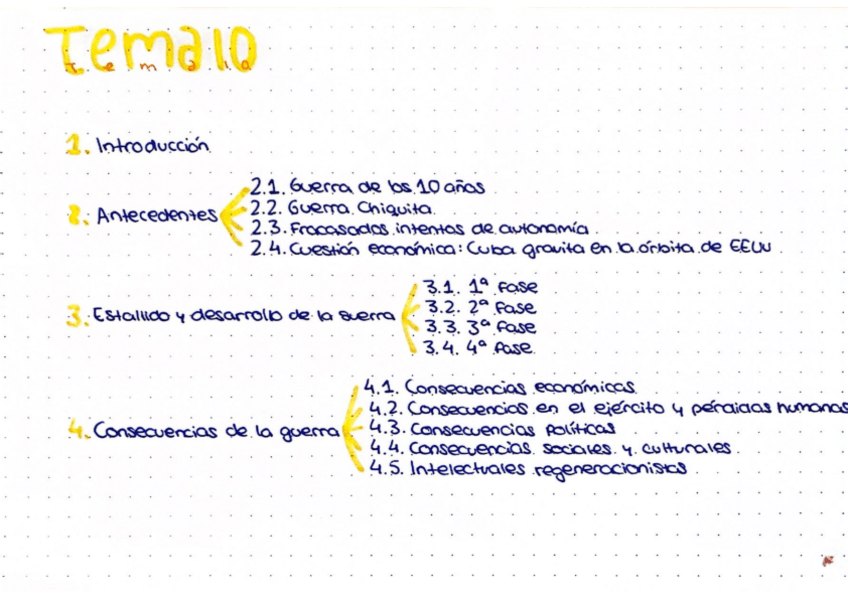 Tema10
Tema 10
1. Introducción
2. Antecedentes
2.1. Guerra de los 10 años
2.2. Guerra Chiquita
2.3. Fracasados intentos de autonomía
2.4. Cuestión económica: Cuba gravita en la órbita de EEUU
3. Estallido y desarrollo de la guerra
3.1. 1ª fase
3.2. 2ª fase
3.3. 3ª fase
3.4. 4ª fase
4. Consecuencias de la guerra
4.1. Consecuencias económicas
4.2. Consecuencias en el ejército y pérdidas humanas
4.3. Consecuencias políticas
4.4. Consecuencias sociales y culturales
4.5. Intelectuales regeneracionistas